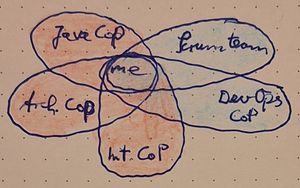 Java CoP
Scrum team
me
Arch. CoP
DevOps
CoP
Int. CoP